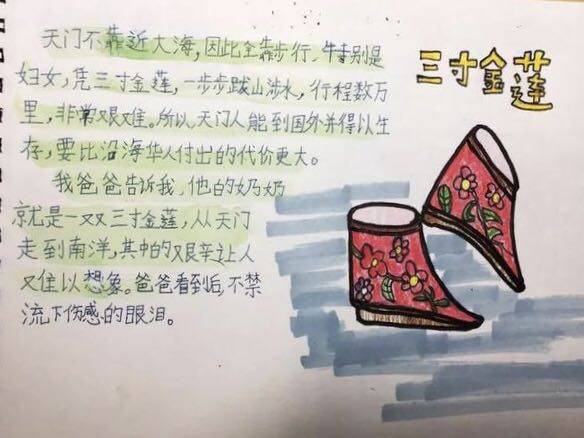 三寸金莲
天门不靠近大海,因此全靠步行、特别是
妇女,凭三寸金莲,一步步跋山涉水,行程数万
里,非常艰难。所以,天门人能到国外并得以生
存,要比沿海华人付出的代价更大。
我爸爸告诉我,他的奶奶
就是一双三寸金莲,从天门
走到南洋,其中的艰辛让人
难以想象。爸爸看到后,不禁
流下伤感的眼泪。